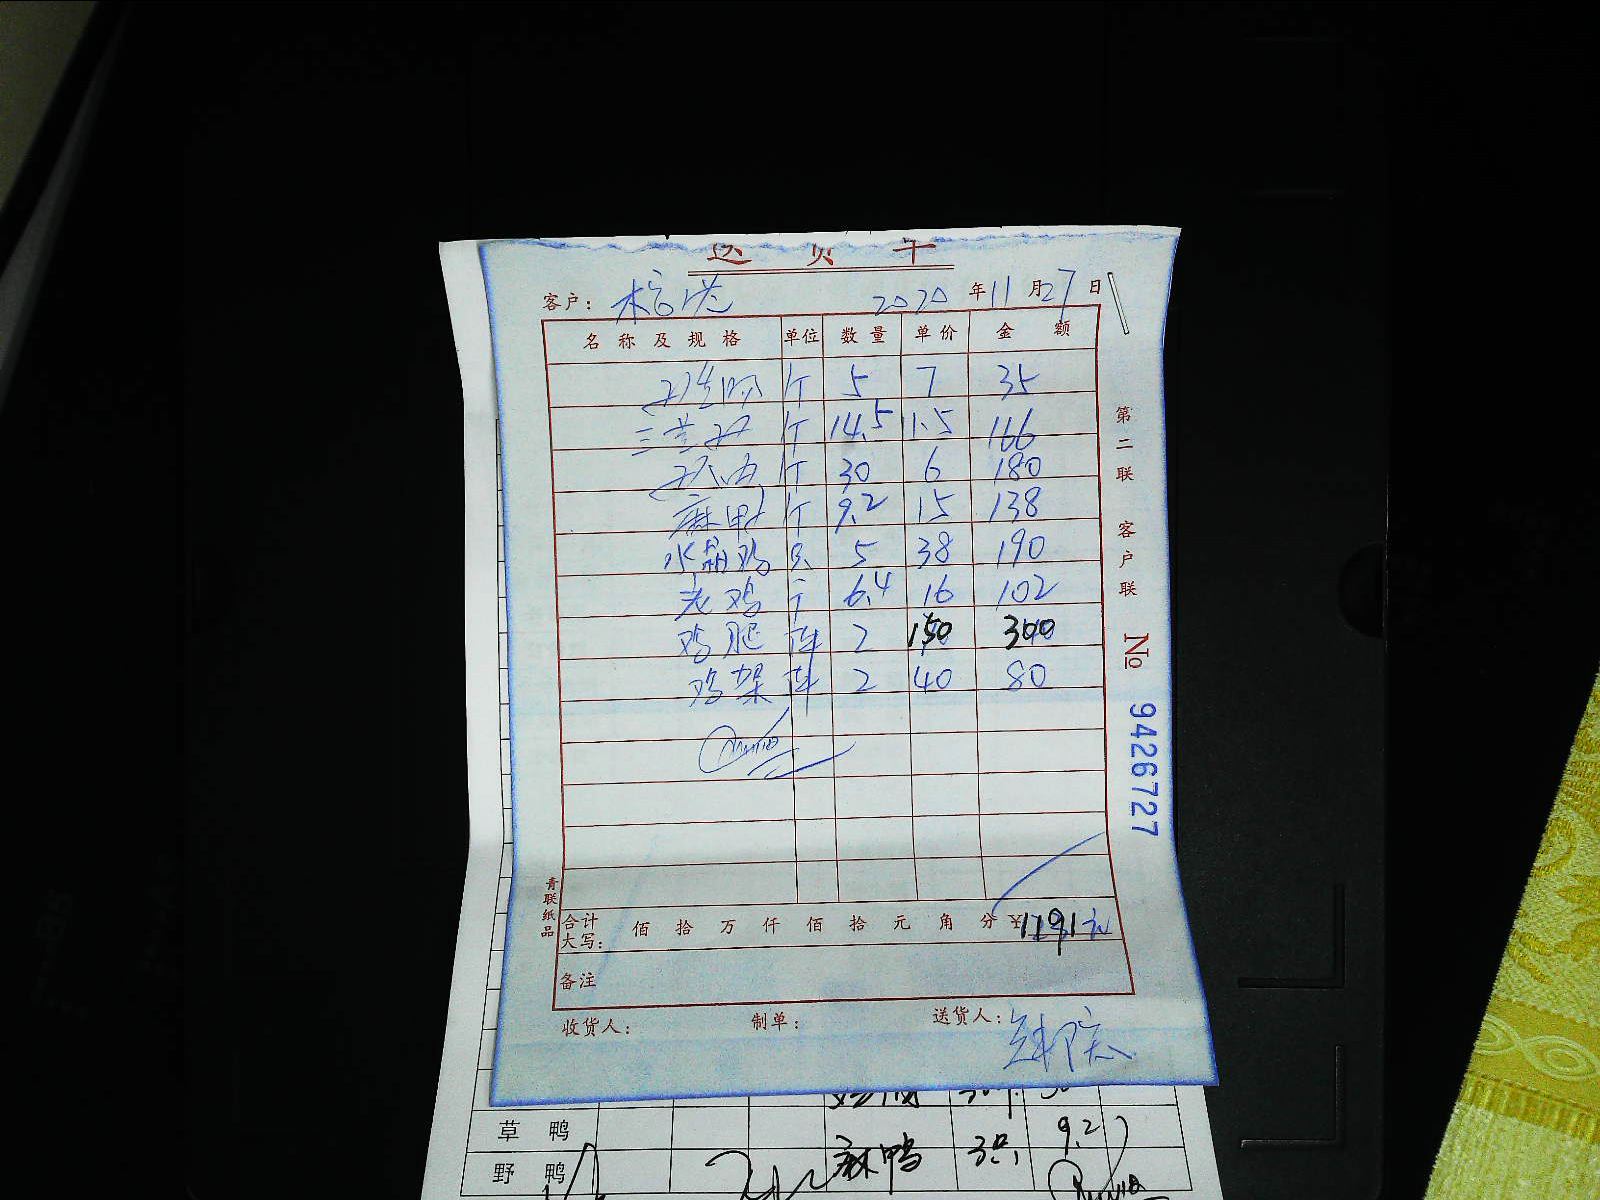 送货单
客户: 2020 年 11 月 27 日
名称及规格 单位 数量 单价 金额
个 5 7 35
个 14.5 11.5 166
个 30 6 180
麻鸭 个 9.2 15 138
水晶鸡 只 5 38 190
老鸡 个 6.4 16 102
鸡腿 件 2 150 300
鸡架 件 2 40 80
第二联 客户联
№ 9426727
青联纸品
合计大写: 佰 拾 万 仟 佰 拾 元 角 分 ¥1191元
备注
收货人: 制单: 送货人:
草鸭 9.2
野鸭 麻鸭 3只